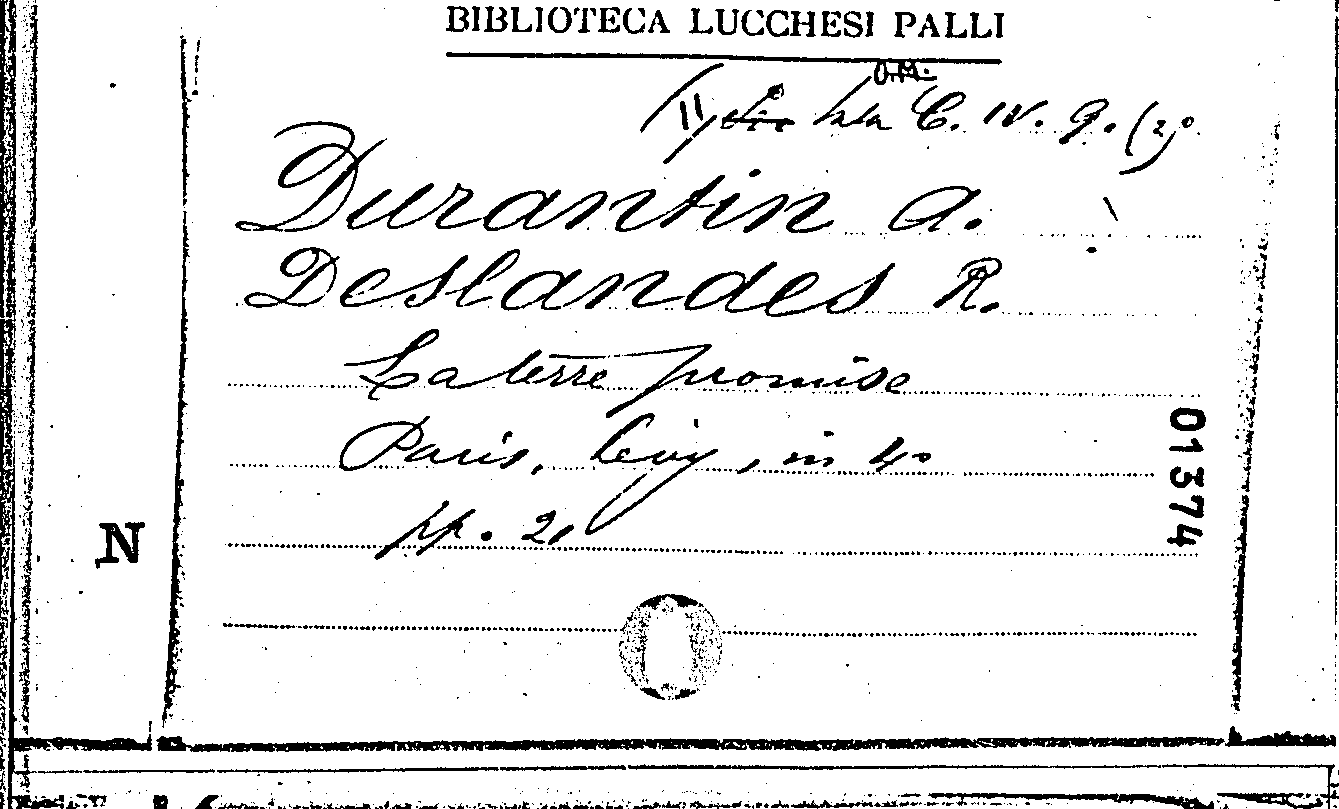 BIBLIOTECA LUCCHESI PALLI
O.M.
Sala C. IV. 9. (2)°
Durantin A.
Deslandes R.
La terre promise
Paris, Lévy, in 4°
pp. 21
01374
N